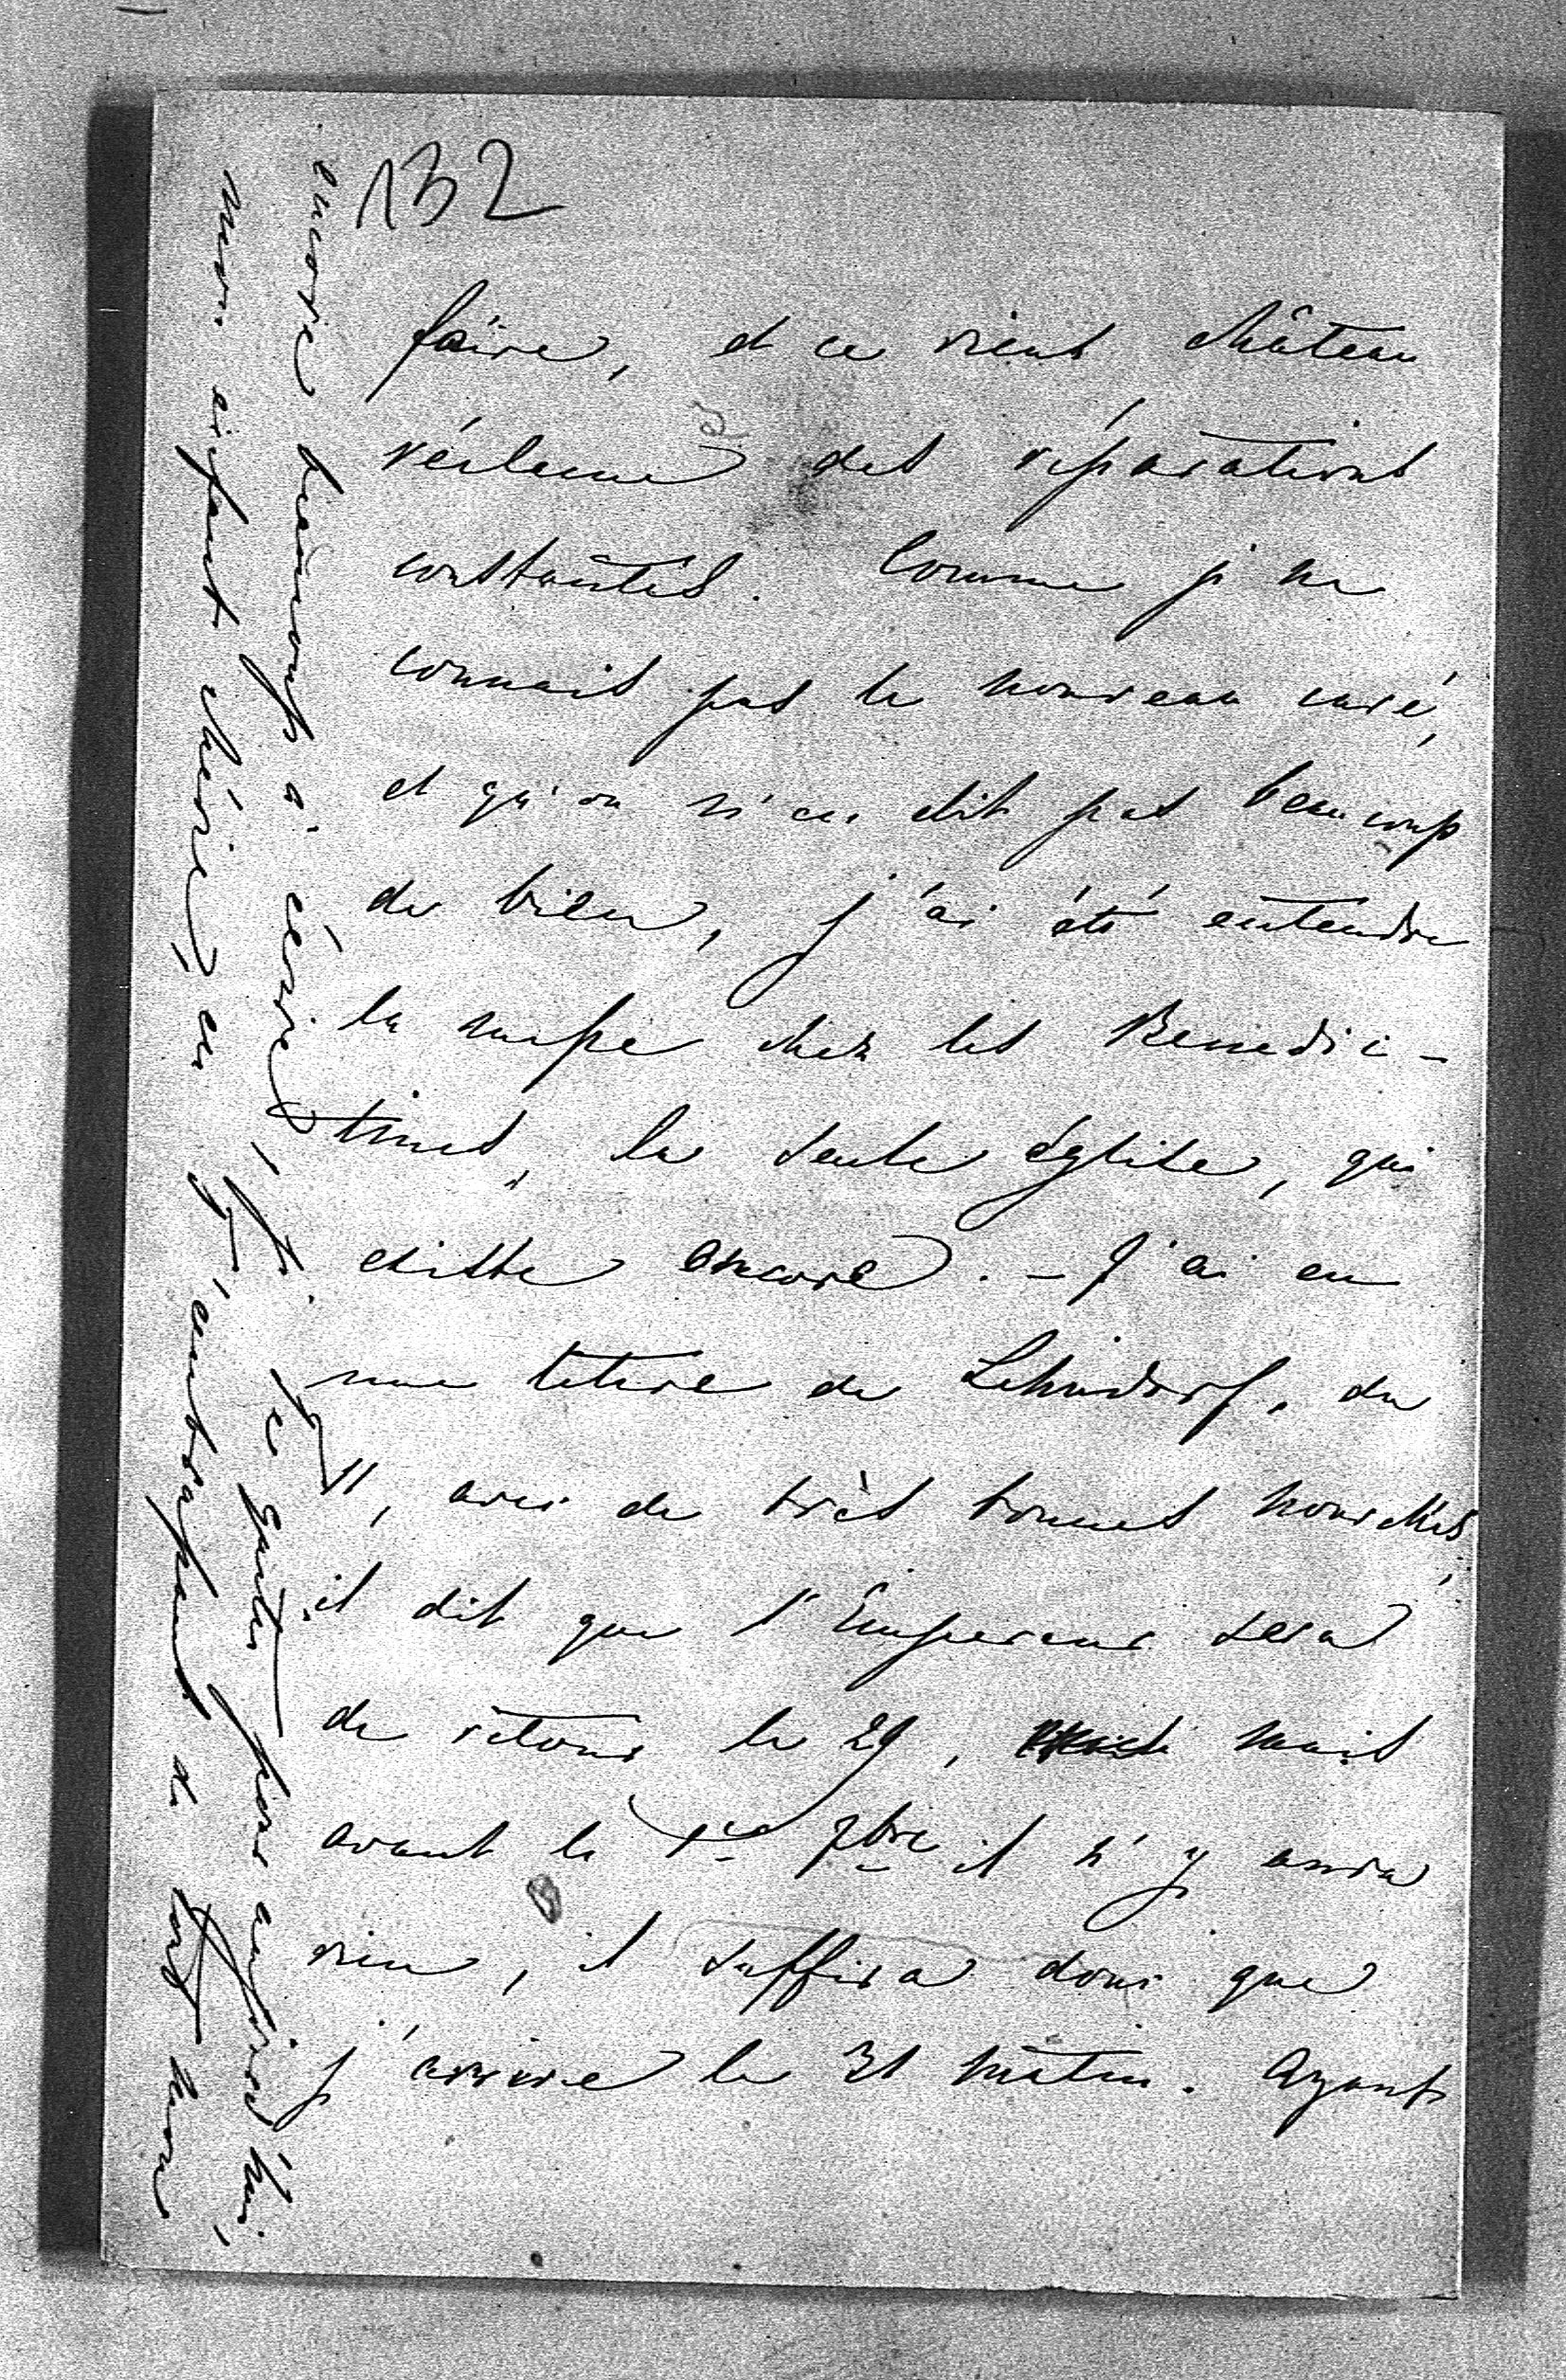 132
faire, et ce vieux château
réclame des réparations
constantes. Comme je ne
connais pas le nouveau curé,
et qu'on n'en dit pas beaucoup
de bien, j'ai été entendre
la messe chez les Benedic-
tines, la seule église, qui
existe encore. - J'ai eu
une lettre de Lehndorf, du
11, avec de très bonnes nouvelles,
il dit que l'Empereur sera
de retour le 29, mais
avant le 1er 7bre il n'y aura
rien, il suffira donc que
j'arrive le 31 matin. Ayant
encore beaucoup à écrire,
je te quitte pour aujourd'hui,
mon enfant chérie, en
t'embrassant de tout mon